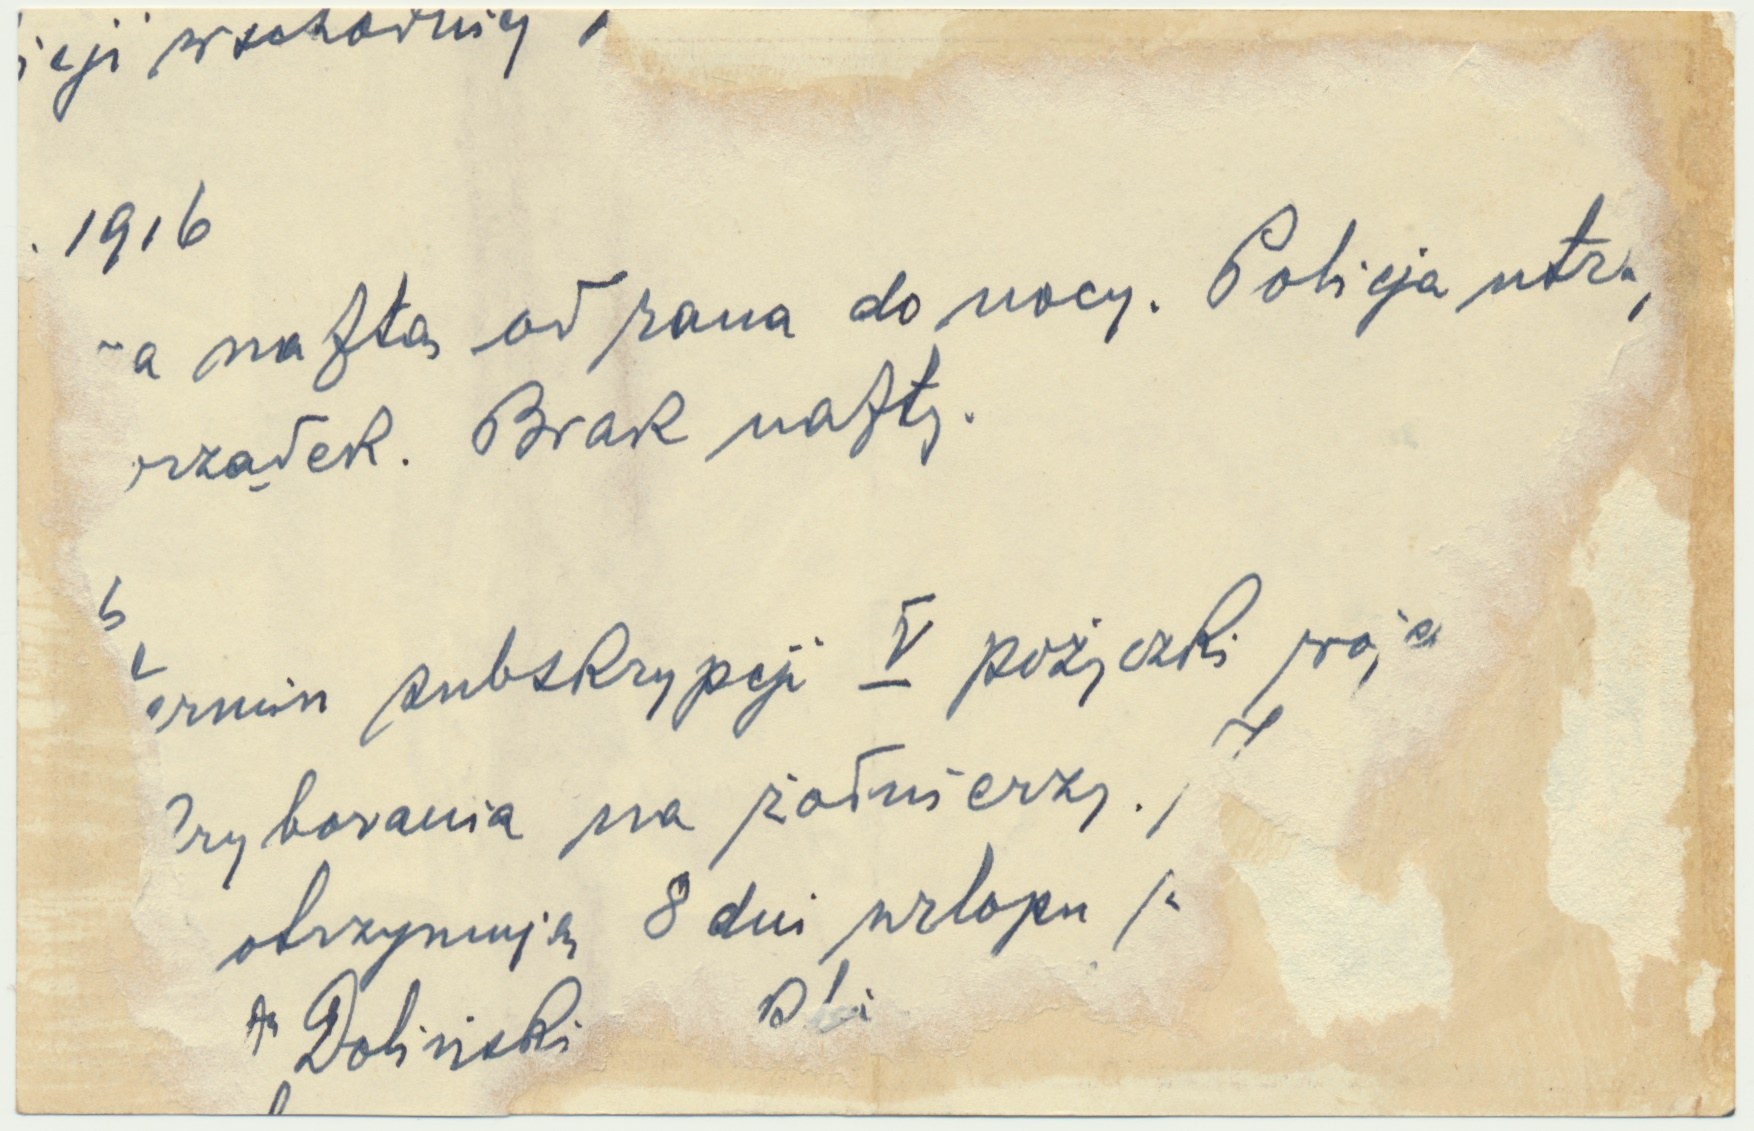 icji wschodniej
. 1916
a naftą od rana do nocy. Policja utrz
rządek. Brak nafty.
6
ermin subskrypcji V pożyczki woje
rybowania na żołnierzy.
otrzymują 8 dni urlopu
Doliński